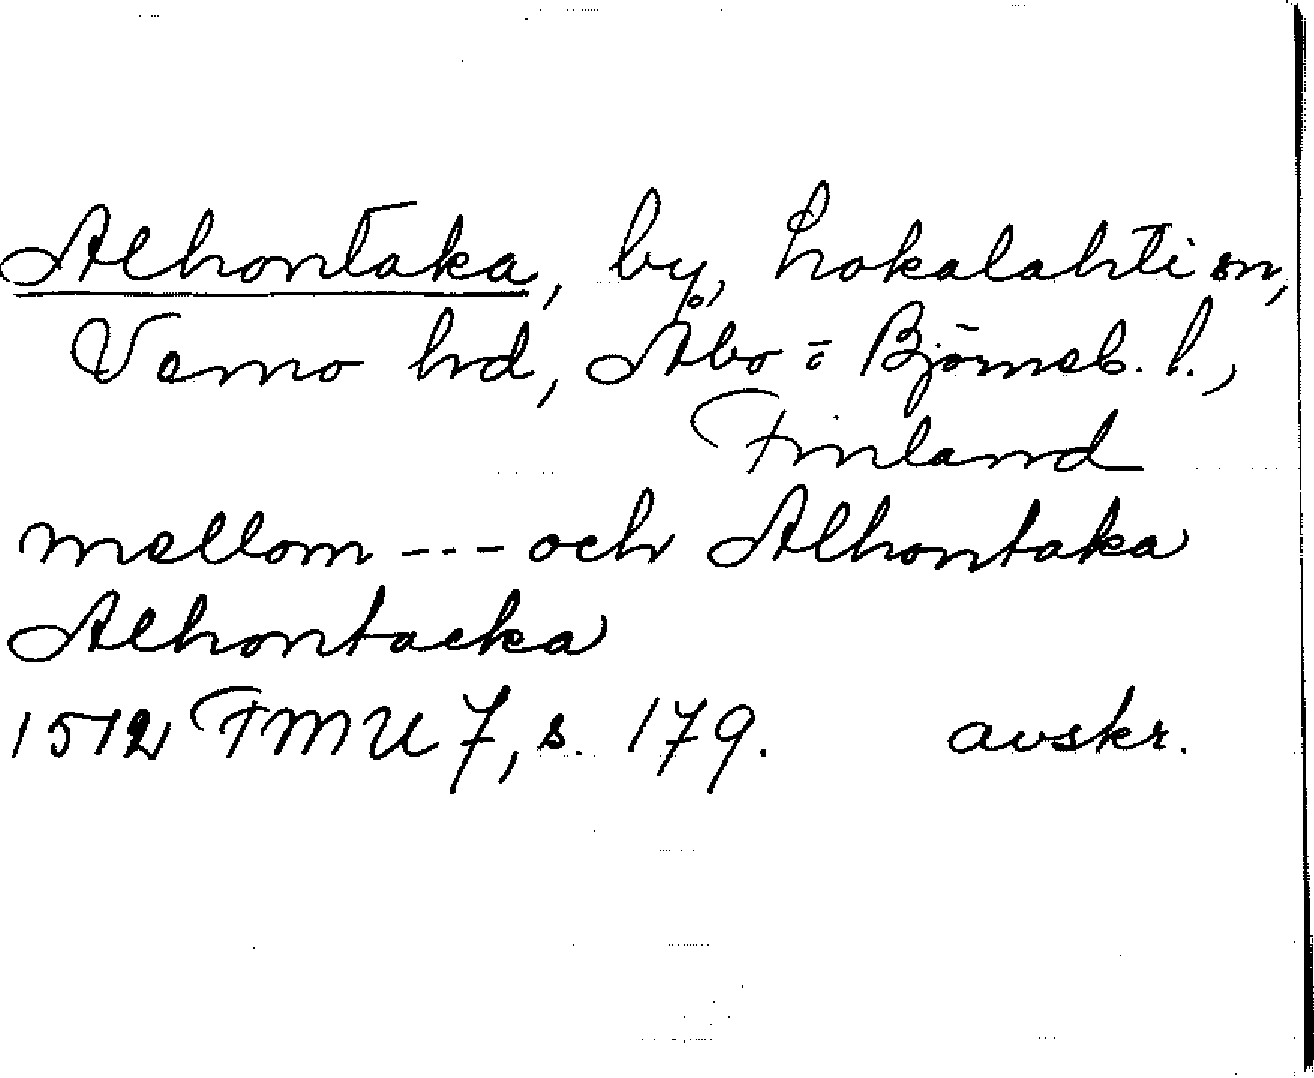 Alhontaka, by, Lokalahti sn,
Vemo hd, Åbo o Björneb. l.,
Finland
mellom --- och Alhontaka
Alhontacka
1512 FMU 7, s. 179. avskr.